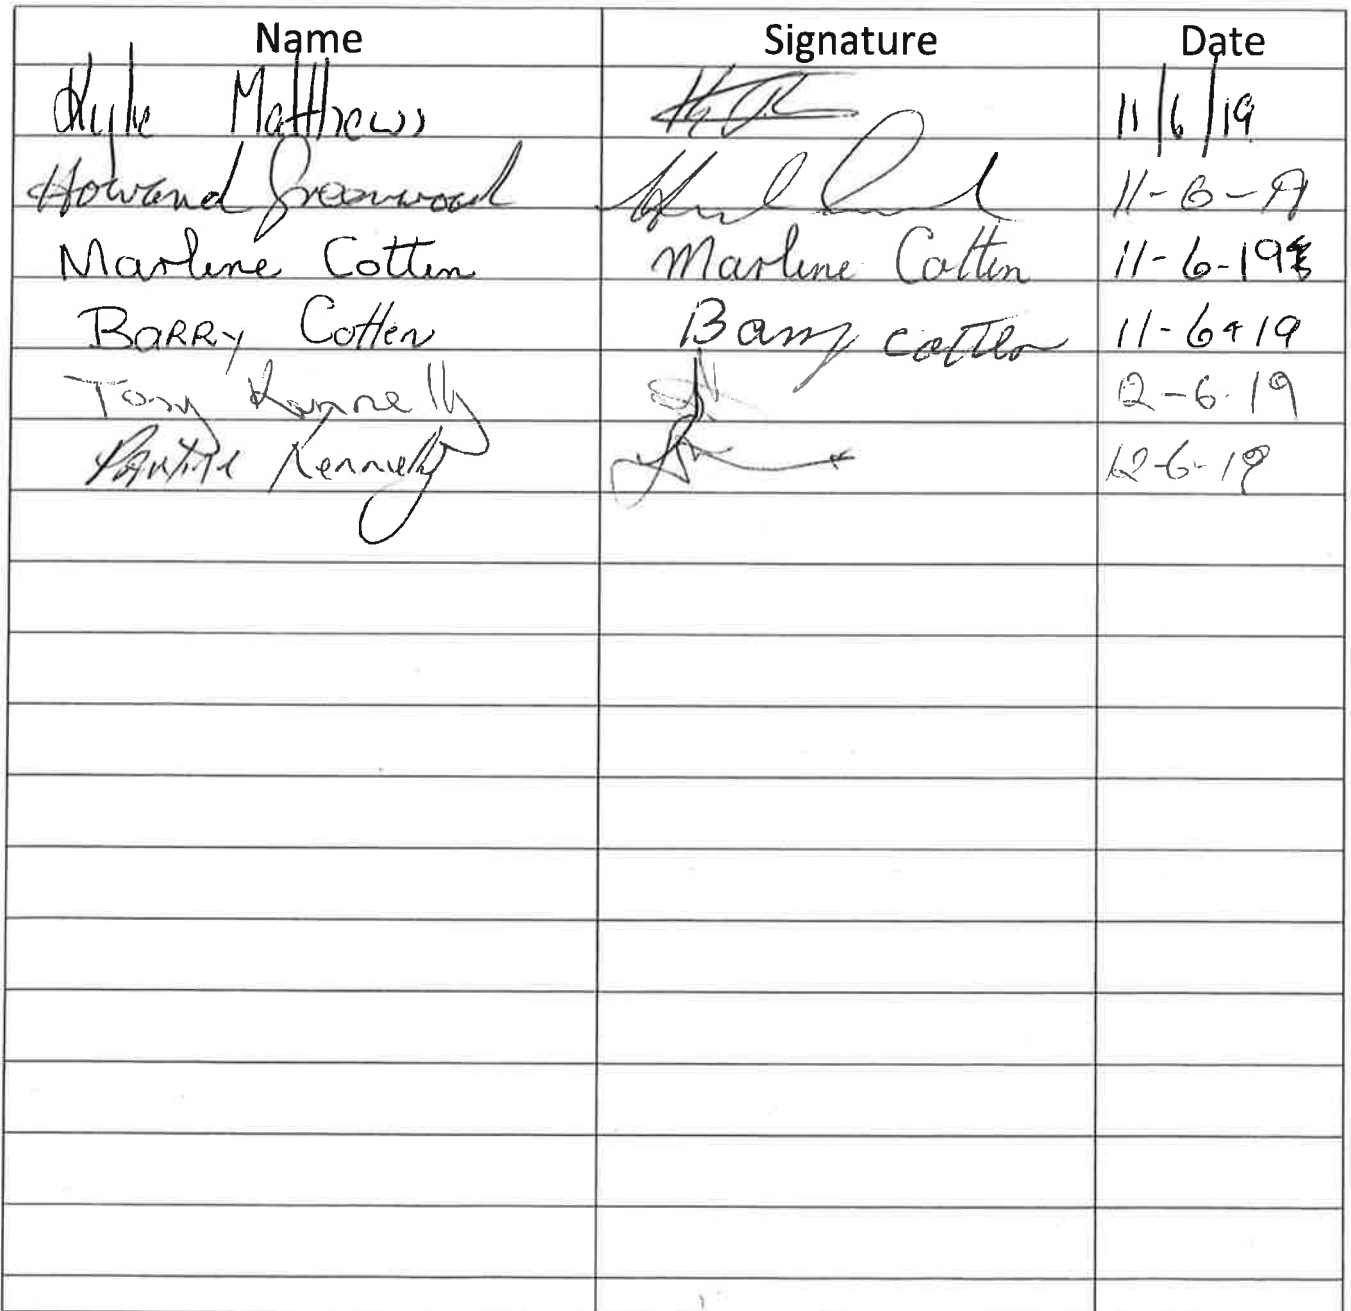 Name Signature Date
Kyle Matthews 11/6/19
Howard Greenwood 11-6-19
Marlene Cotten Marlene Cotten 11-6-19
BARRY Cotten Barry cotten 11-6-19
Tony Kennelly 12-6-19
Kennelly 12-6-19